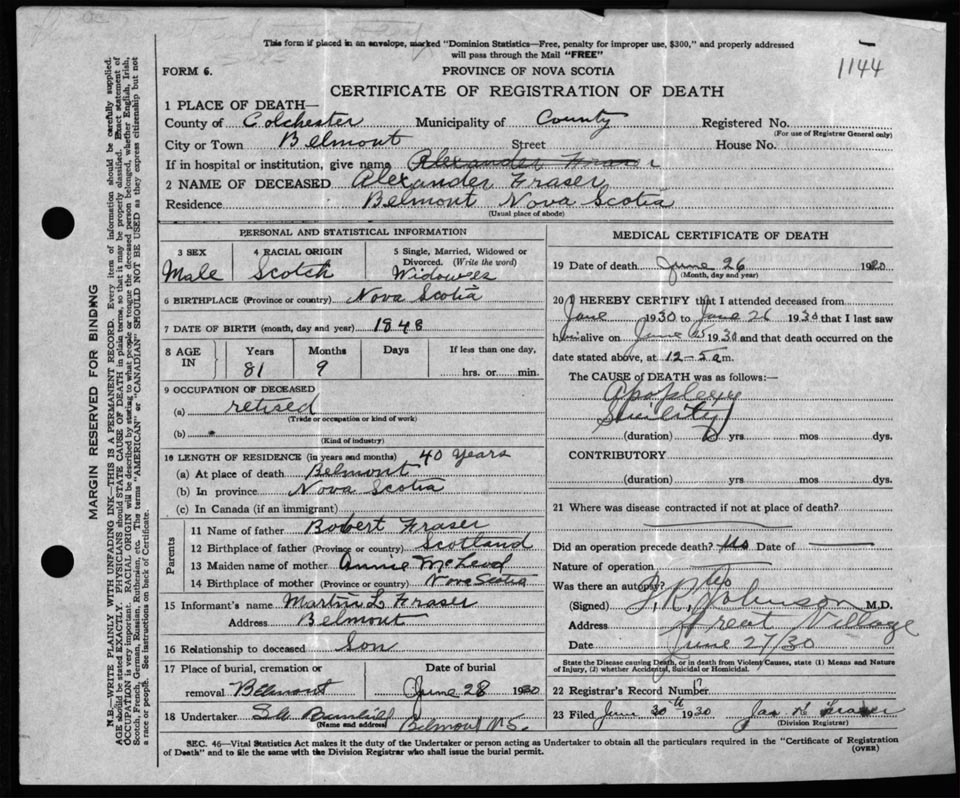 This form if placed in an envelope, marked "Dominion Statistics—Free, penalty for improper use, $300," and properly addressed
will pass through the Mail "FREE"
1144
FORM 6.
PROVINCE OF NOVA SCOTIA
CERTIFICATE OF REGISTRATION OF DEATH
1 PLACE OF DEATH—
County of Colchester Municipality of County Registered No.
(For use of Registrar General only)
City or Town Belmont Street House No.
If in hospital or institution, give name Alexander Fraser
2 NAME OF DECEASED Alexander Fraser
Residence Belmont Nova Scotia
(Usual place of abode)
PERSONAL AND STATISTICAL INFORMATION
3 SEX 4 RACIAL ORIGIN 5 Single, Married, Widowed or
Divorced. (Write the word)
Male Scotch Widower
6 BIRTHPLACE (Province or country) Nova Scotia
7 DATE OF BIRTH (month, day and year) 1848
8 AGE IN Years Months Days If less than one day,
81 9 hrs. or min.
9 OCCUPATION OF DECEASED
(a) retired
(Trade or occupation or kind of work)
(b)
(Kind of industry)
10 LENGTH OF RESIDENCE (in years and months) 40 Years
(a) At place of death Belmont
(b) In province Nova Scotia
(c) In Canada (if an immigrant)
Parents
11 Name of father Robert Fraser
12 Birthplace of father (Province or country) Scotland
13 Maiden name of mother Annie McLeod
14 Birthplace of mother (Province or country) Nova Scotia
15 Informant's name Martin L Fraser
Address Belmont
16 Relationship to deceased Son
17 Place of burial, cremation or Date of burial
removal Belmont June 28 1930
18 Undertaker
(Name and address) Belmont N.S.
MEDICAL CERTIFICATE OF DEATH
19 Date of death June 26 1930
(Month, day and year)
20 I HEREBY CERTIFY that I attended deceased from
June 1930 to June 26 1930 that I last saw
him alive on June 25 1930 and that death occurred on the
date stated above, at 12-5 a m.
The CAUSE of DEATH was as follows:—
Apoplexy
Senility
(duration) yrs mos dys.
CONTRIBUTORY
(duration) yrs mos dys.
21 Where was disease contracted if not at place of death?
Did an operation precede death? No Date of
Nature of operation
Was there an autopsy? No
(Signed) T. R. Johnson M.D.
Address Great Village
Date June 27/30
State the Disease causing Death, or in death from Violent Causes, state (1) Means and Nature
of Injury, (2) whether Accidental, Suicidal or Homicidal.
22 Registrar's Record Number
23 Filed June 30th 1930 Jas
(Division Registrar)
SEC. 46—Vital Statistics Act makes it the duty of the Undertaker or person acting as Undertaker to obtain all the particulars required in the "Certificate of Registration
of Death" and to file the same with the Division Registrar who shall issue the burial permit.
(OVER)
MARGIN RESERVED FOR BINDING
N.B.—WRITE PLAINLY WITH UNFADING INK—THIS IS A PERMANENT RECORD. Every item of information should be carefully supplied.
AGE should be stated EXACTLY. PHYSICIANS should STATE CAUSE OF DEATH in plain terms, so that it may be properly classified. Exact statement of
OCCUPATION is very important. RACIAL ORIGIN will be described by stating to what people or tongue the deceased person belonged, whether English, Irish,
Scotch, French, German, Russian, Ruthenian, etc. The terms "AMERICAN" or "CANADIAN" SHOULD NOT BE USED as they express citizenship but not
a race or people. See instructions on back of Certificate.